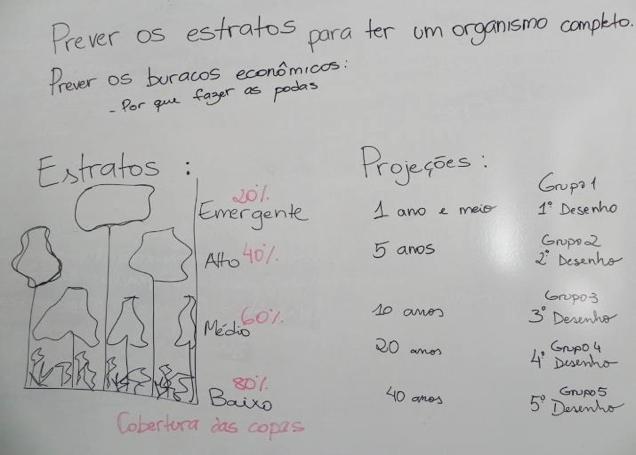 Prever os estratos para ter um organismo completo.
Prever os buracos econômicos:
- Por que fazer as podas
Estratos :
20%
Emergente
Alto 40%
Médio 60%
80%
Baixo
Cobertura das copas
Projeções :
1 ano e meio
5 anos
10 anos
20 anos
40 anos
Grupo 1
1º Desenho
Grupo 2
2º Desenho
Grupo 3
3º Desenho
Grupo 4
4º Desenho
Grupo 5
5º Desenho